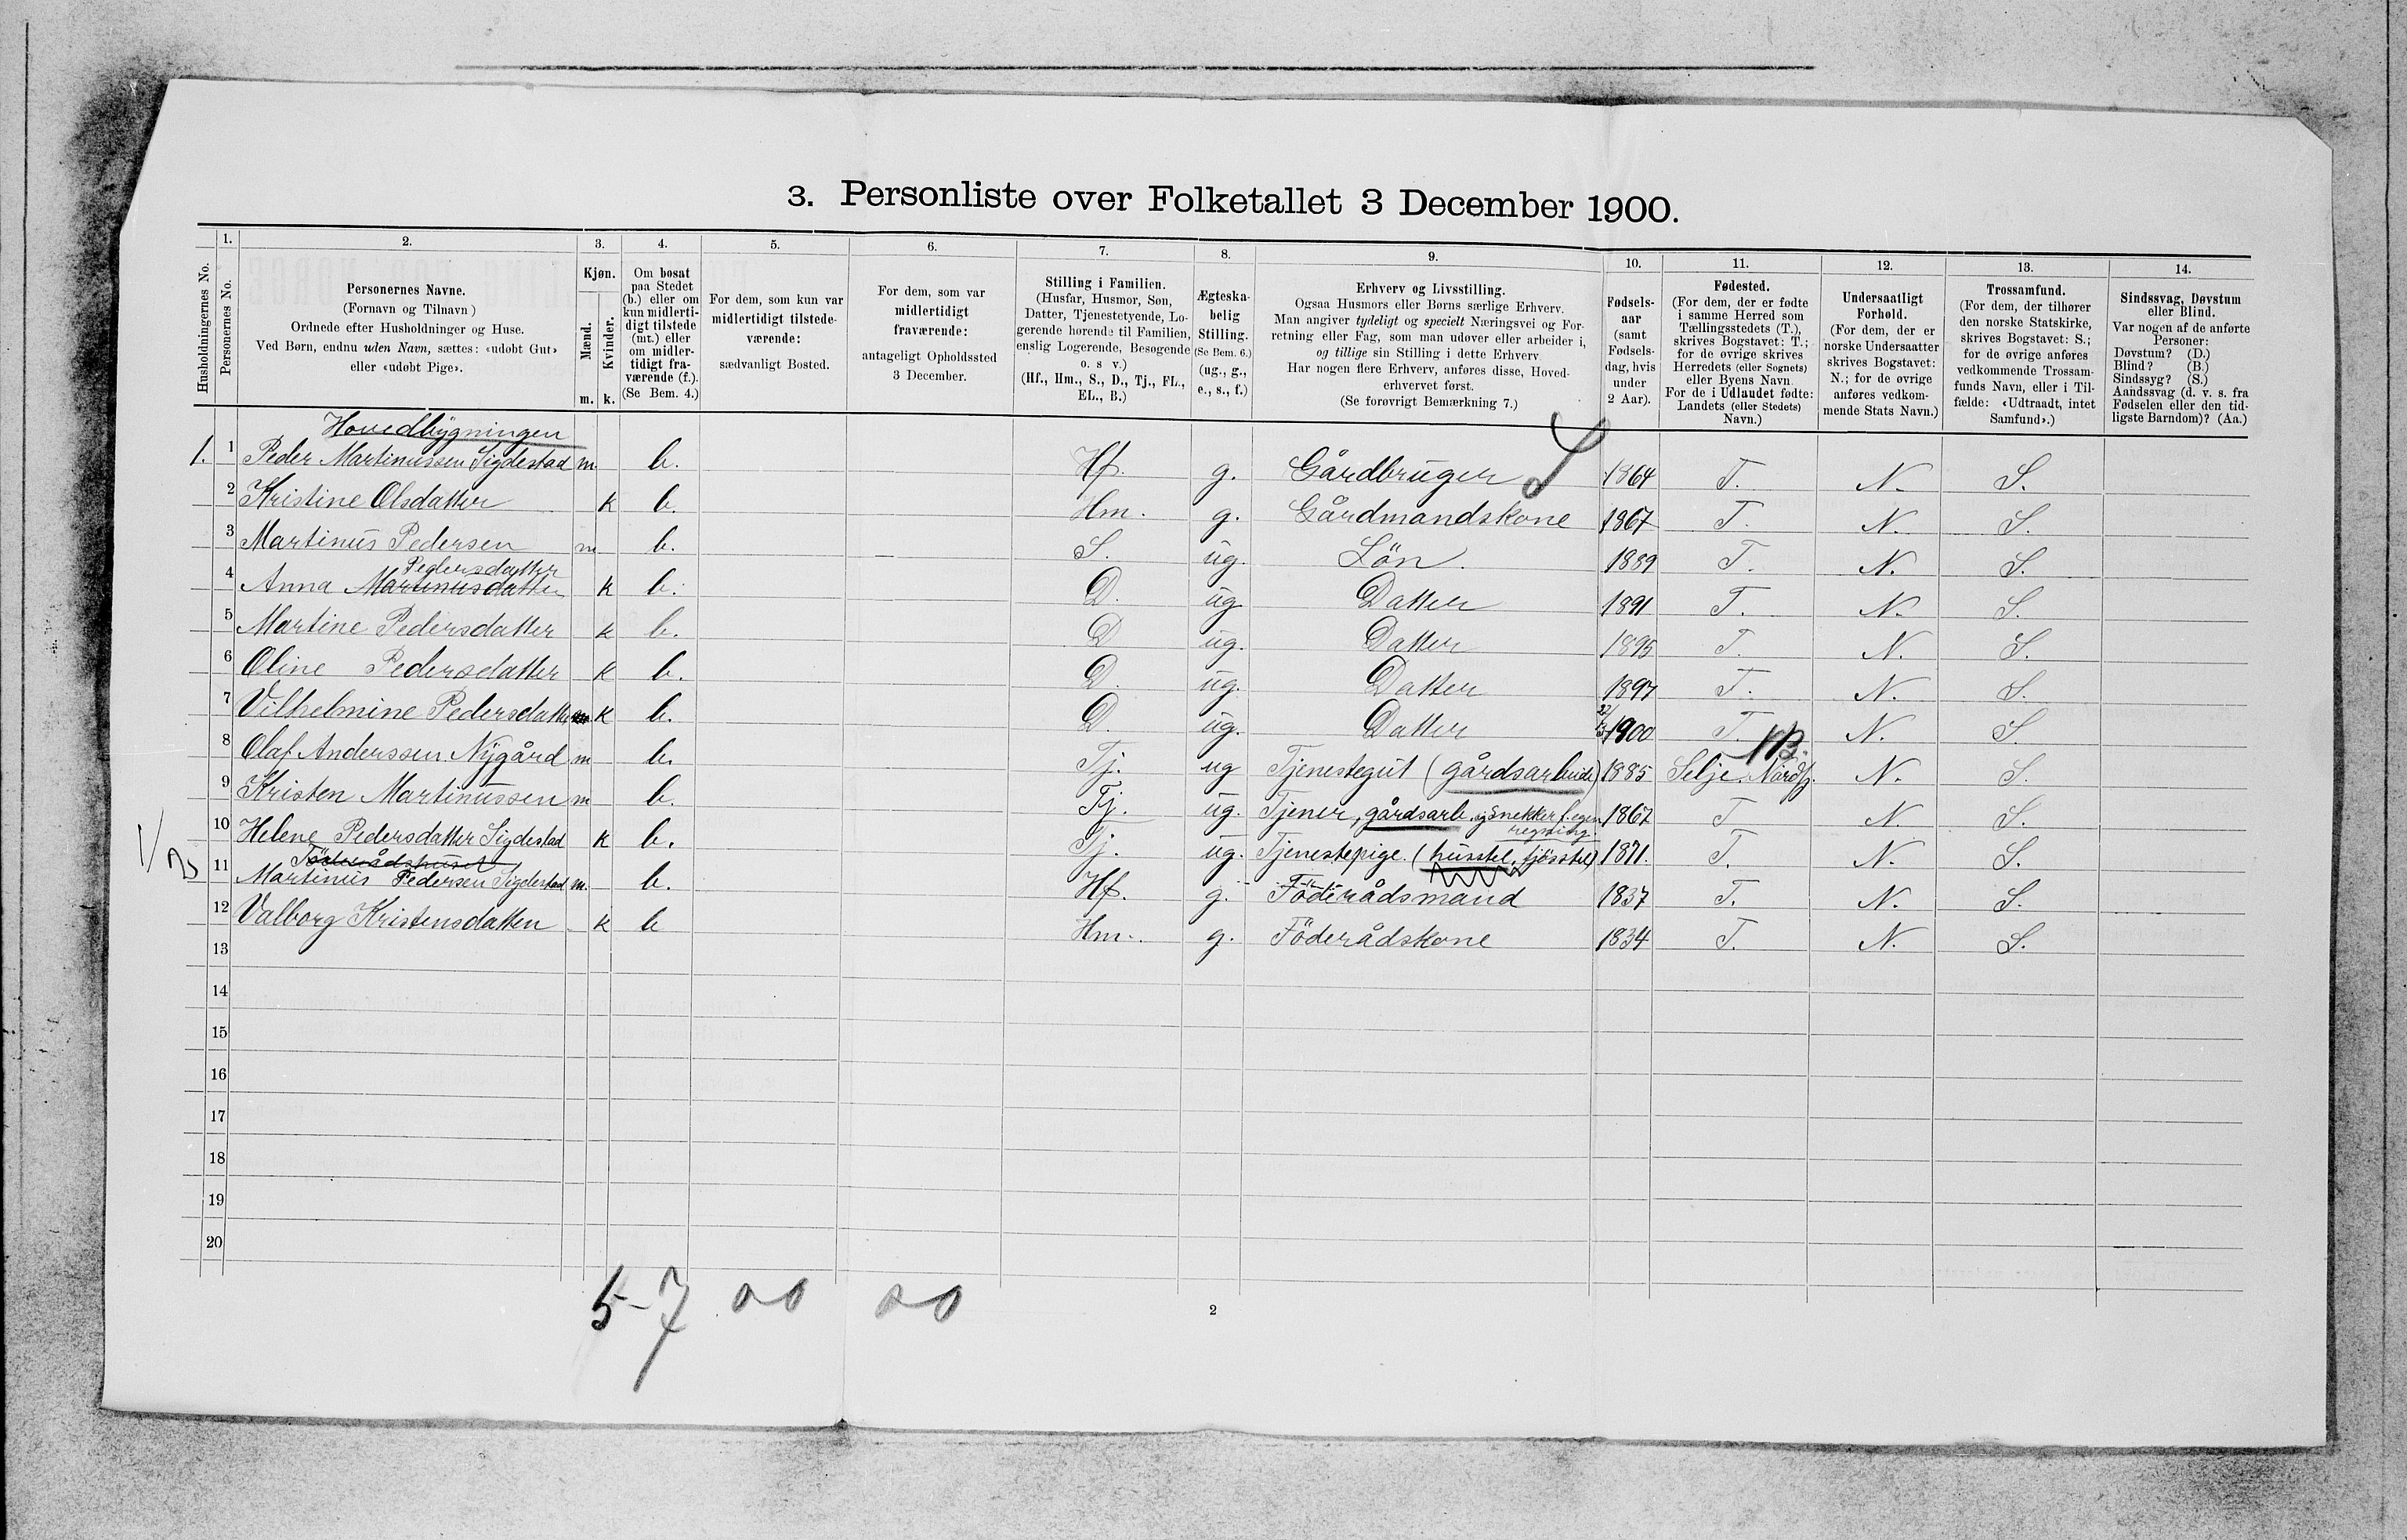 3. Personliste over Folketallet 3 December 1900.
1. 2. 3. 4. 5. 6. 7. 8. 9. 10. 11. 12. 13. 14.
Husholdningernes No.
Personernes No.
Personernes Navne.
(Fornavn og Tilnavn)
Ordnede efter Husholdninger og Huse.
Ved Børn, endnu uden Navn, sættes: «udøbt Gut»
eller «udøbt Pige».
Kjøn.
Mænd.
Kvinder.
m. k.
Om bosat
paa Stedet
(b.) eller om
kun midlerti-
digt tilstede
(mt.) eller
om midler-
tidigt fra-
værende (f.).
(Se Bem. 4.)
For dem, som kun var
midlertidigt tilstede-
værende:
sædvanligt Bosted.
For dem, som var
midlertidigt
fraværende:
antageligt Opholdssted
3 December.
Stilling i Familien.
(Husfar, Husmor, Søn,
Datter, Tjenestetyende, Lo-
gerende hørende til Familien,
enslig Logerende, Besøgende
o. s v.)
(Hf., Hm., S., D., Tj., FL.,
EL., B.)
Ægteska-
belig
Stilling.
(Se Bem. 6.)
(ug., g.,
e., s., f.)
Erhverv og Livsstilling.
Ogsaa Husmors eller Børns særlige Erhverv.
Man angiver tydeligt og specielt Næringsvei og For-
retning eller Fag, som man udøver eller arbeider i,
og tillige sin Stilling i dette Erhverv.
Har nogen flere Erhverv, anføres disse, Hoved-
erhvervet først.
(Se forøvrigt Bemærkning 7.)
Fødsels-
aar
(samt
Fødsels-
dag, hvis
under
2 Aar).
Fødested.
(For dem, der er fødte
i samme Herred som
Tællingsstedets (T.),
skrives Bogstavet: T.;
for de øvrige skrives
Herredets (eller Sognets)
eller Byens Navn.
For de i Udlandet fødte:
Landets (eller Stedets)
Navn.)
Undersaatligt
Forhold.
(For dem, der er
norske Undersaatter
skrives Bogstavet:
N.; for de øvrige
anføres vedkom-
mende Stats Navn.)
Trossamfund.
(For dem, der tilhører
den norske Statskirke,
skrives Bogstavet: S.;
for de øvrige anføres
vedkommende Trossam-
funds Navn, eller i Til-
fælde: «Udtraadt, intet
Samfund».)
Sindssvag, Døvstum
eller Blind.
Var nogen af de anførte
Personer:
Døvstum? (D.)
Blind? (B.)
Sindssyg? (S.)
Aandssvag (d. v. s. fra
Fødselen eller den tid-
ligste Barndom)? (Aa.)
Hovedbygningen
1. 1 Peder Martinussen Sigdestad m. b. Hf. g. Gårdbruger 1864 T. N. S.
2 Kristine Olsdatter k b. Hm. g. Gårdmandskone 1867 T. N. S.
3 Martinus Pedersen m b. S. ug. Sön. 1889 T. N. S.
Pedersdatter
4 Anna Martinusdatter k b. D. ug 1891 Datter T. N. S.
5 Martine Pedersdatter k b. D ug. Datter 1895 T. N. S.
6 Oline Pedersdatter k b. D. ug. Datter 1897 T. N. S.
7 Vilhelmine Pedersdatter k b. D. ug. Datter 1900 T. N. S.
8 Olaf Anderssen Nygård m b. Tj. ug Tjenestegut (gårdsarbeide) 1885 Selje Nordfj. N. S.
9 Kristen Martinussen m b. Tj. ug. Tjener, gårdsarb. og snekker f. egen regning. 1867 T N. S.
10 Helene Pedersdatter Sigdestad k b. Tj. ug. Tjenestepige. (husstel, fjösstel) 1871. T. N. S.
Föderådshuset
11 Martinus Pedersen Sigdestad m. b. Hf. g. Föderådsmand 1837 T. N. S.
12 Valborg Kristensdatter k b Hm. g. Föderådskone 1834 T. N. S.
13
14
15
16
17
18
19
20
5-7 00 00
2